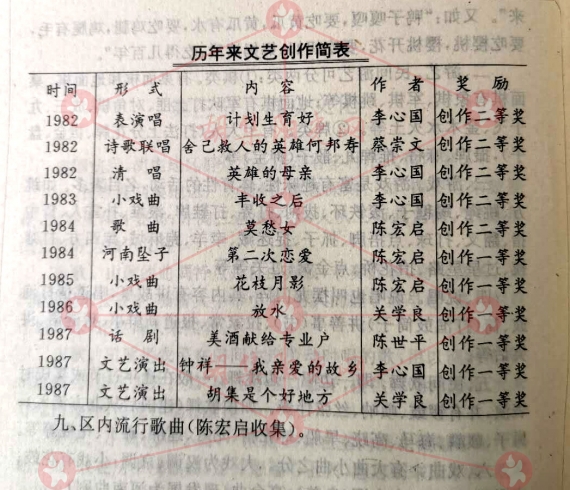 来”。又如：“鸭子嘎嘎，要吃黄瓜，黄瓜有水，要吃鸡腿，鸡腿有毛，
要吃樱桃，樱桃开花
几百年”。
历年来文艺创作简表
时间 形式 内容 作者 奖励
1982 表演唱 计划生育好 李心国 创作二等奖
1982 诗歌联唱 舍己救人的英雄何邦寿 蔡崇文 创作二等奖
1982 清唱 英雄的母亲 李心国 创作二等奖
1983 小戏曲 丰收之后 李心国 创作二等奖
1984 歌曲 莫愁女 陈宏启 创作二等奖
1984 河南坠子 第二次恋爱 陈宏启 创作一等奖
1985 小戏曲 花枝月影 陈宏启 创作一等奖
1986 小戏曲 放水 关学良 创作一等奖
1987 话剧 美酒献给专业户 陈世平 创作一等奖
1987 文艺演出 钟祥——我亲爱的故乡 李心国 创作一等奖
1987 文艺演出 胡集是个好地方 关学良 创作一等奖
九、区内流行歌曲(陈宏启收集)。